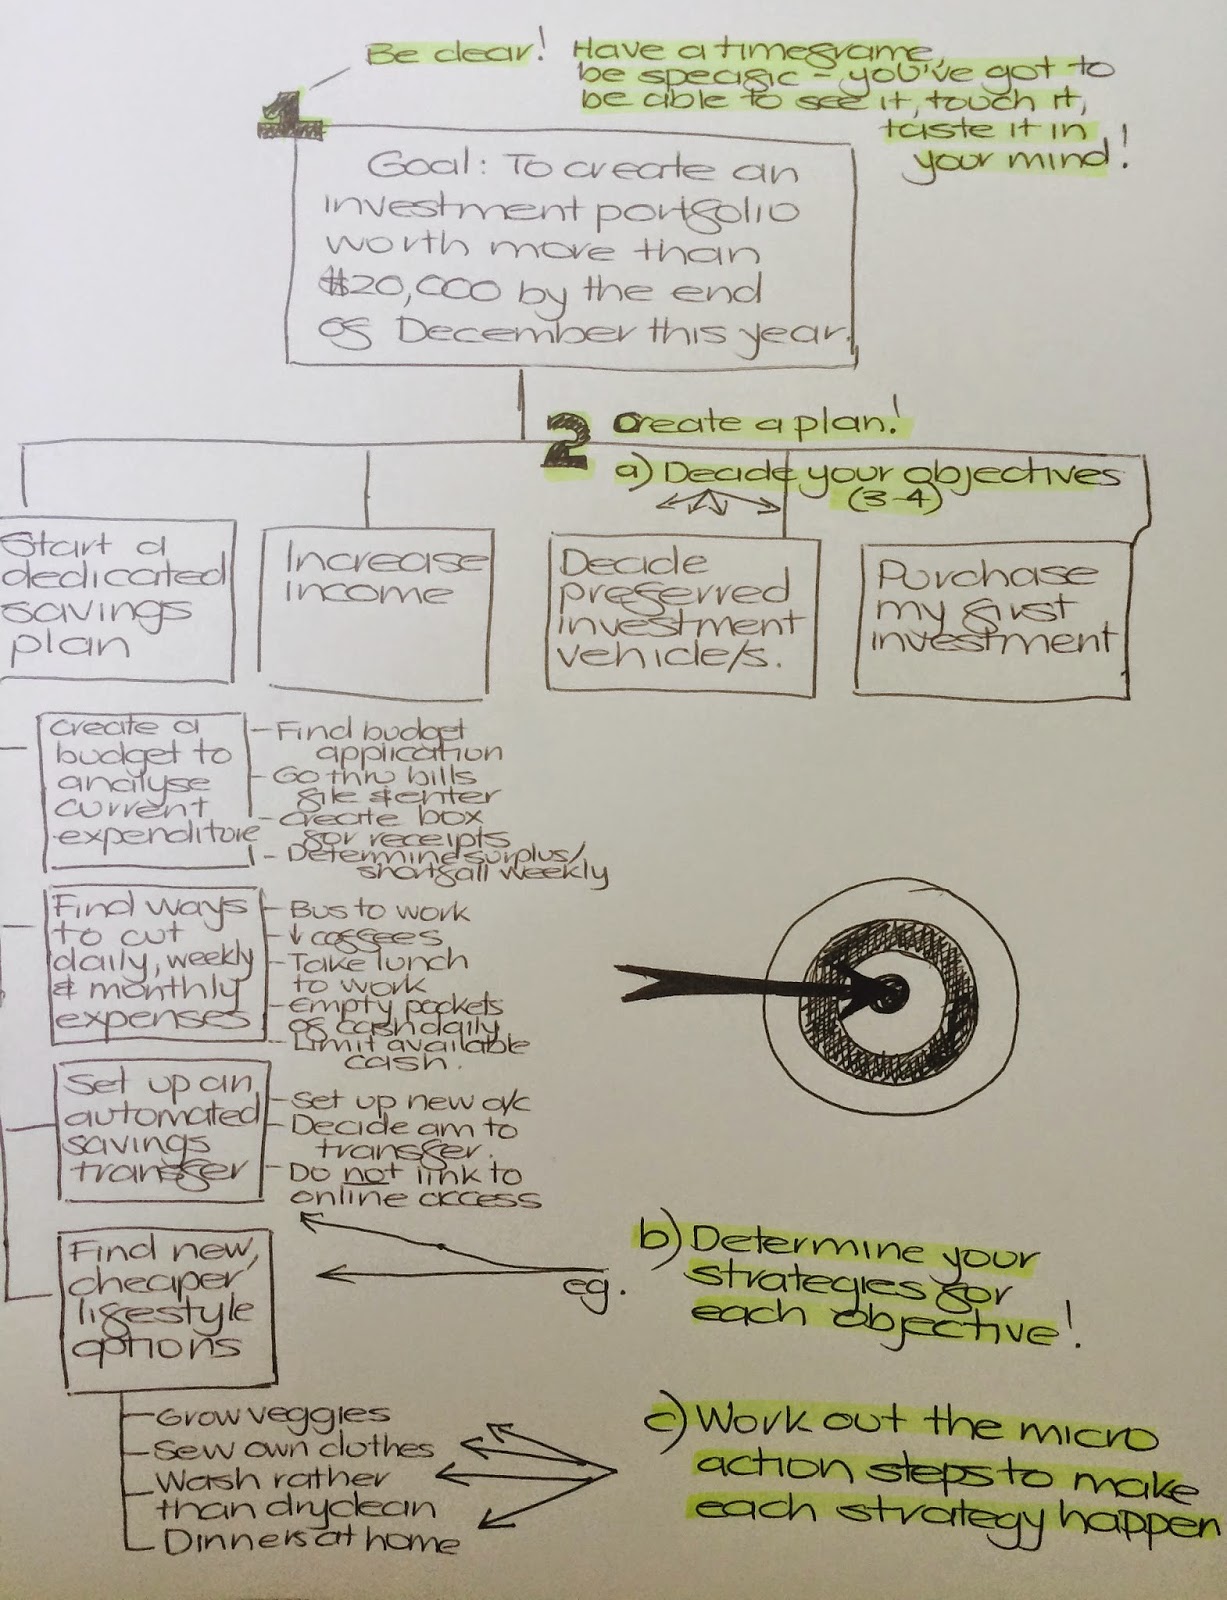 Be clear! Have a timeframe,
be specific - you've got to
be able to see it, touch it,
taste it in
your mind!
1
Goal: To create an
investment portfolio
worth more than
$20,000 by the end
of December this year.
2 Create a plan!
a) Decide your objectives
(3-4)
Start a
dedicated
savings
plan
Increase
income
Decide
preferred
investment
vehicle/s.
Purchase
my first
investment
Create a
budget to
analyse
current
expenditure
- Find budget
application
- Go thru bills
file & enter
- Create box
for receipts
- Determine surplus/
shortfall weekly
Find ways
to cut
daily, weekly
& monthly
expenses
- Bus to work
- ↓ coffees
- Take lunch
to work
- Empty pockets
of cash daily
- Limit available
cash.
Set up an
automated
savings
transfer
- Set up new a/c
- Decide am to
transfer.
- Do not link to
online access
Find new,
cheaper
lifestyle
options
- Grow veggies
- Sew own clothes
- Wash rather
than dryclean
- Dinners at home
eg.
b) Determine your
strategies for
each objective!
c) Work out the micro
action steps to make
each strategy happen